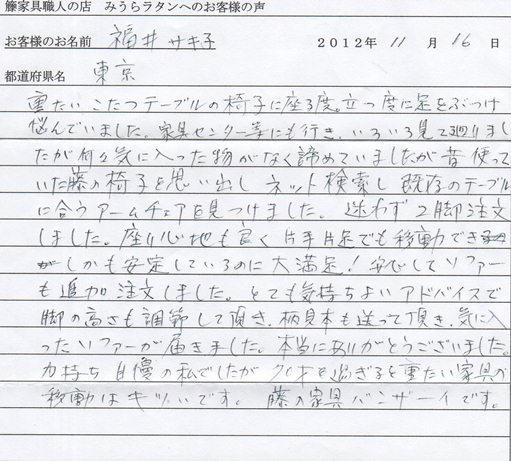 籐家具職人の店 みうらラタンへのお客様の声
お客様のお名前 福井 サキ子 2012年 11 月 16 日
都道府県名 東京
重たい こたつテーブルの椅子に座る度。立つ度に足をぶつけ
悩んでいました。家具センター等にも行き、いろいろ見て廻りまし
たが何々気に入った物がなく諦めていましたが昔使って
いた藤の椅子を思い出し ネット検索し 既存のテーブル
に合うアームチェアを見つけました。 迷わず2脚注文
しました。座り心地も良く片手片足でも移動でき
がしかも安定しているのに大満足! 安心してソファー
も追加注文しました。とても気持ちよいアドバイスで
脚の高さも調節して頂き、柄見本も送って頂き、気に入
ったソファーが届きました。本当にありがとうございました。
力持ち自慢の私でしたが 70才を過ぎると重たい家具の
移動はキツいです。 藤の家具バンザーイです。